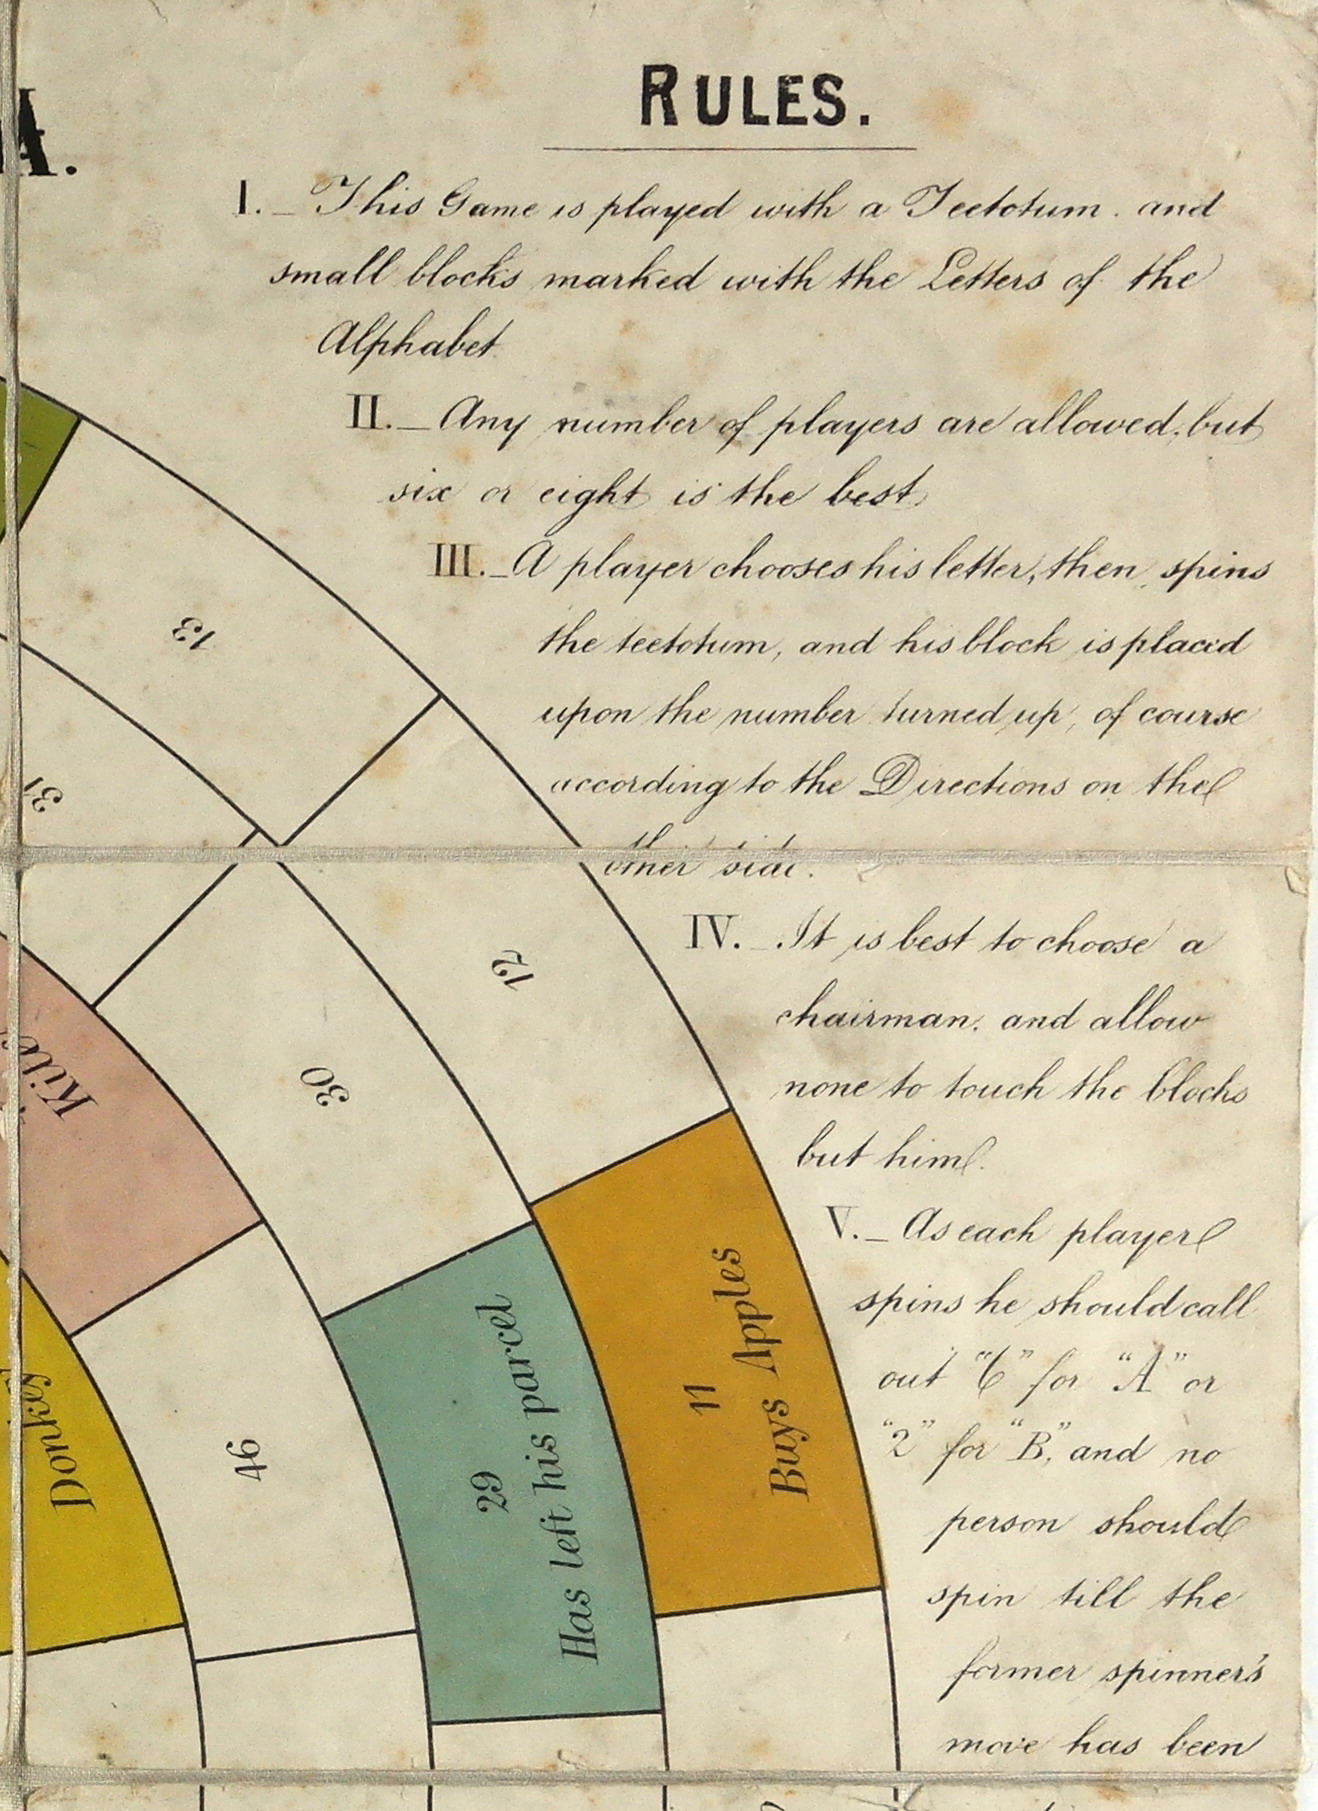 A.
RULES.
I._ This Game is played with a Teetotum. and
small blocks marked with the Letters of the
Alphabet.
II._ Any number of players are allowed, but
six or eight is the best.
III._ A player chooses his letter, then spins
the teetotum, and his block is placed
upon the number turned up, of course
according to the Directions on the
other side.
IV._ It is best to choose a
chairman. and allow
none to touch the blocks
but him.
V._ As each player
spins he should call
out "6" for "A" or
"2" for "B", and no
person should
spin till the
former spinner's
move has been
13
31
12
30
11
Buys Apples
29
Has left his parcel
46
Donkey